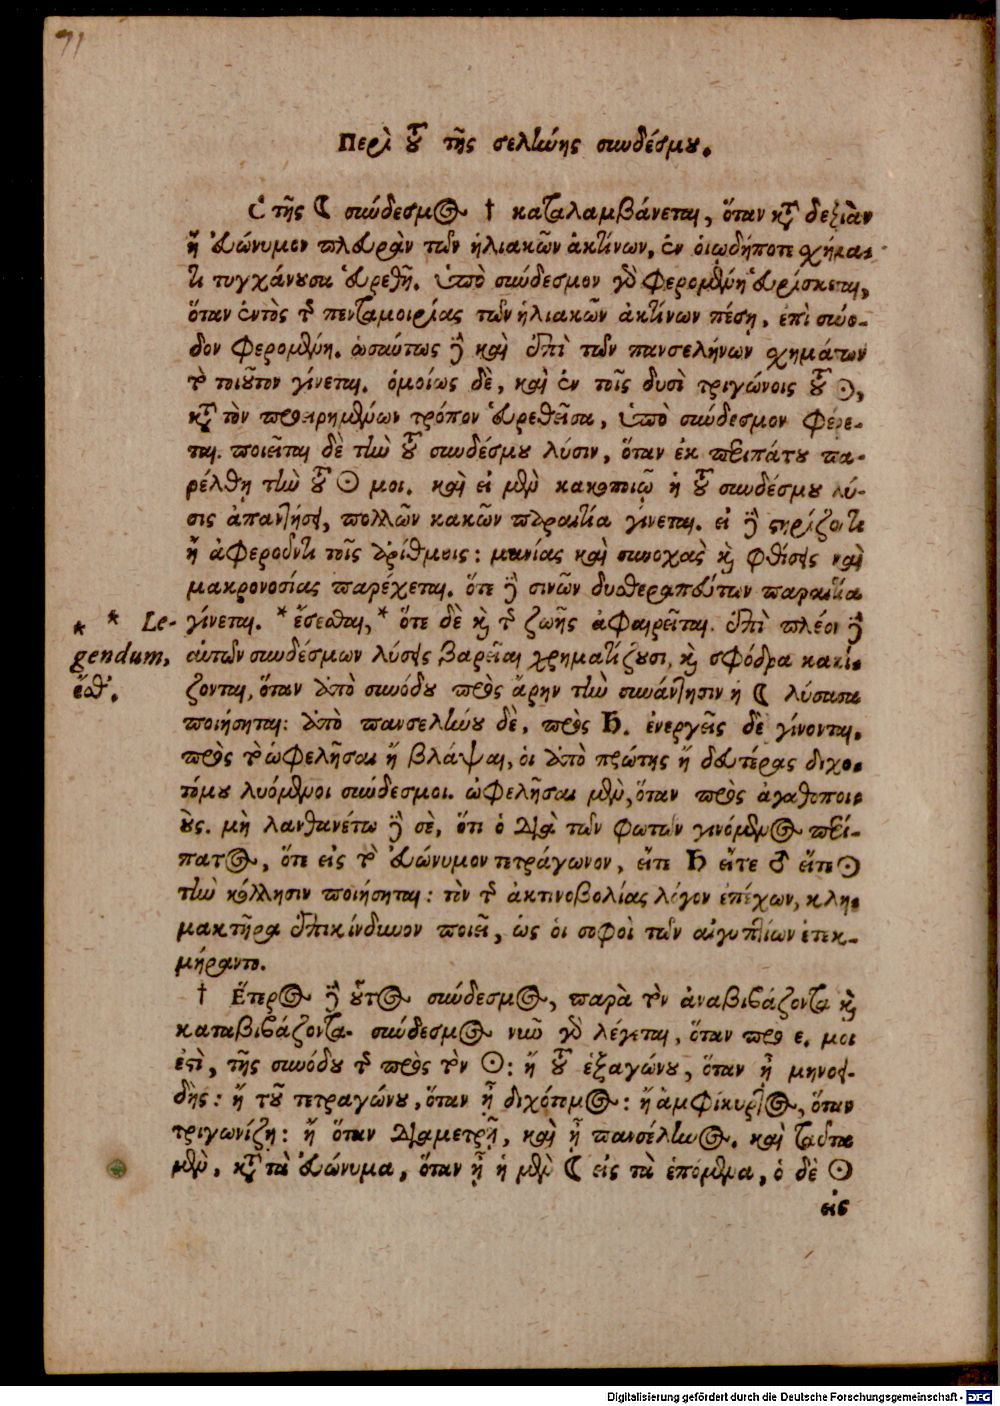 71
Περὶ τοῦ τῆς σελήνης συνδέσμου.
Ὁ τῆς ☾ σύνδεσμος † καταλαμβάνεται, ὅταν κατὰ δεξιὰν
ἢ εὐώνυμον πλευρὰν τῶν ἡλιακῶν ἀκτίνων, ἐν οἱῳδήποτε σχήμα-
τι τυγχάνουσα εὑρεθῇ. ὑπὸ σύνδεσμον γὰρ φερομένη εὑρίσκεται,
ὅταν ἐντὸς τῆς πενταμοιρίας τῶν ἡλιακῶν ἀκτίνων πέσῃ, ἐπὶ σύνο-
δον φερομένη. ὡσαύτως δὲ καὶ ἐπὶ τῶν πανσελήνων σχημάτων
τὸ τοιοῦτον γίνεται. ὁμοίως δὲ, καὶ ἐν τοῖς δυσὶ τριγώνοις τοῦ ☉,
κατὰ τὸν προειρημένων τρόπον εὑρεθεῖσα, ὑπὸ σύνδεσμον φέρε-
ται. ποιεῖται δὲ τὴν τοῦ συνδέσμου λύσιν, ὅταν ἐκ περιπάτου πα-
ρέλθῃ τὴν τοῦ ☉ μοι. καὶ εἰ μὲν κακοποιῷ ἡ τοῦ συνδέσμου λύ-
σις ἀπαντήσει, πολλῶν κακῶν παραιτία γίνεται. εἰ δὲ στηρίζοντι
ἢ ἀφεροῦντι τοῖς ἀριθμοις: μανίας καὶ συνοχὰς καὶ φθίσεις καὶ
μακρονοσίας παρέχεται. ὅτε δὲ σινῶν δυσθεραπεύτων παραιτία
* * Le- γίνεται. * ἔσεσθαι, * ὅτε δὲ καὶ τῆς ζωῆς ἀφαιρεῖται. ἐπὶ πλέον δὲ
gendum, αὐτῶν συνδέσμων λύσεις βαρεῖαι χρηματίζουσι, καὶ σφόδρα κακί-
ἔσθ'. ζονται, ὅταν ἀπὸ συνόδου πρὸς ἄρην τὴν συνάντησιν ἡ ☾ λύσασα
ποιήσηται: ἀπὸ πανσελήνου δὲ, πρὸς ♄. ἐνεργεῖς δὲ γίνονται,
πρὸς τὸ ὠφελῆσαι ἢ βλάψαι, οἱ ἀπὸ πρώτης ἢ δευτέρας διχο-
τόμου λυόμενοι σύνδεσμοι. ὠφελῆσαι μὲν, ὅταν πρὸς ἀγαθοποι-
οὺς. μὴ λανθανέτω δὲ σὲ, ὅτι ὁ διὰ τῶν φωτῶν γινόμενος περί-
πατος, ὅτε εἰς τὸ εὐώνυμον τετράγωνον, εἴτε ♄ εἴτε ♂ εἴτε ☉
τὴν κόλλησιν ποιήσηται: τὸν τῆς ἀκτινοβολίας λόγον ἐπέχων, κλη-
μακτῆρα ἐπικίνδυνον ποιεῖ, ὡς οἱ σοφοὶ τῶν αἰγυπτίων ἐτεκ-
μήραντο.
† Ἕτερος δὲ οὗτος σύνδεσμος, παρὰ τὸν ἀναβιβάζοντα καὶ
καταβιβάζοντα. σύνδεσμος νῦν γὰρ λέγεται, ὅταν πρὸ ε. μοι
ἐστὶ, τῆς συνόδου τῆς πρὸς τὸν ☉: ἢ τοῦ ἑξαγώνου, ὅταν ᾖ μηνοει-
δὴς: ἢ τοῦ τετραγώνου, ὅταν ᾖ διχότομος: ἢ ἀμφίκυρτος, ὅταν
τριγωνίζῃ: ἢ ὅταν διαμετρῇ, καὶ ᾖ πανσέληνος. καὶ ταῦτα
μὲν, κατὰ τὰ εὐώνυμα, ὅταν ᾖ ἡ μὲν ☾ εἰς τὰ ἑπόμενα, ὁ δὲ ☉
εἰς
Digitalisierung gefördert durch die Deutsche Forschungsgemeinschaft - DFG